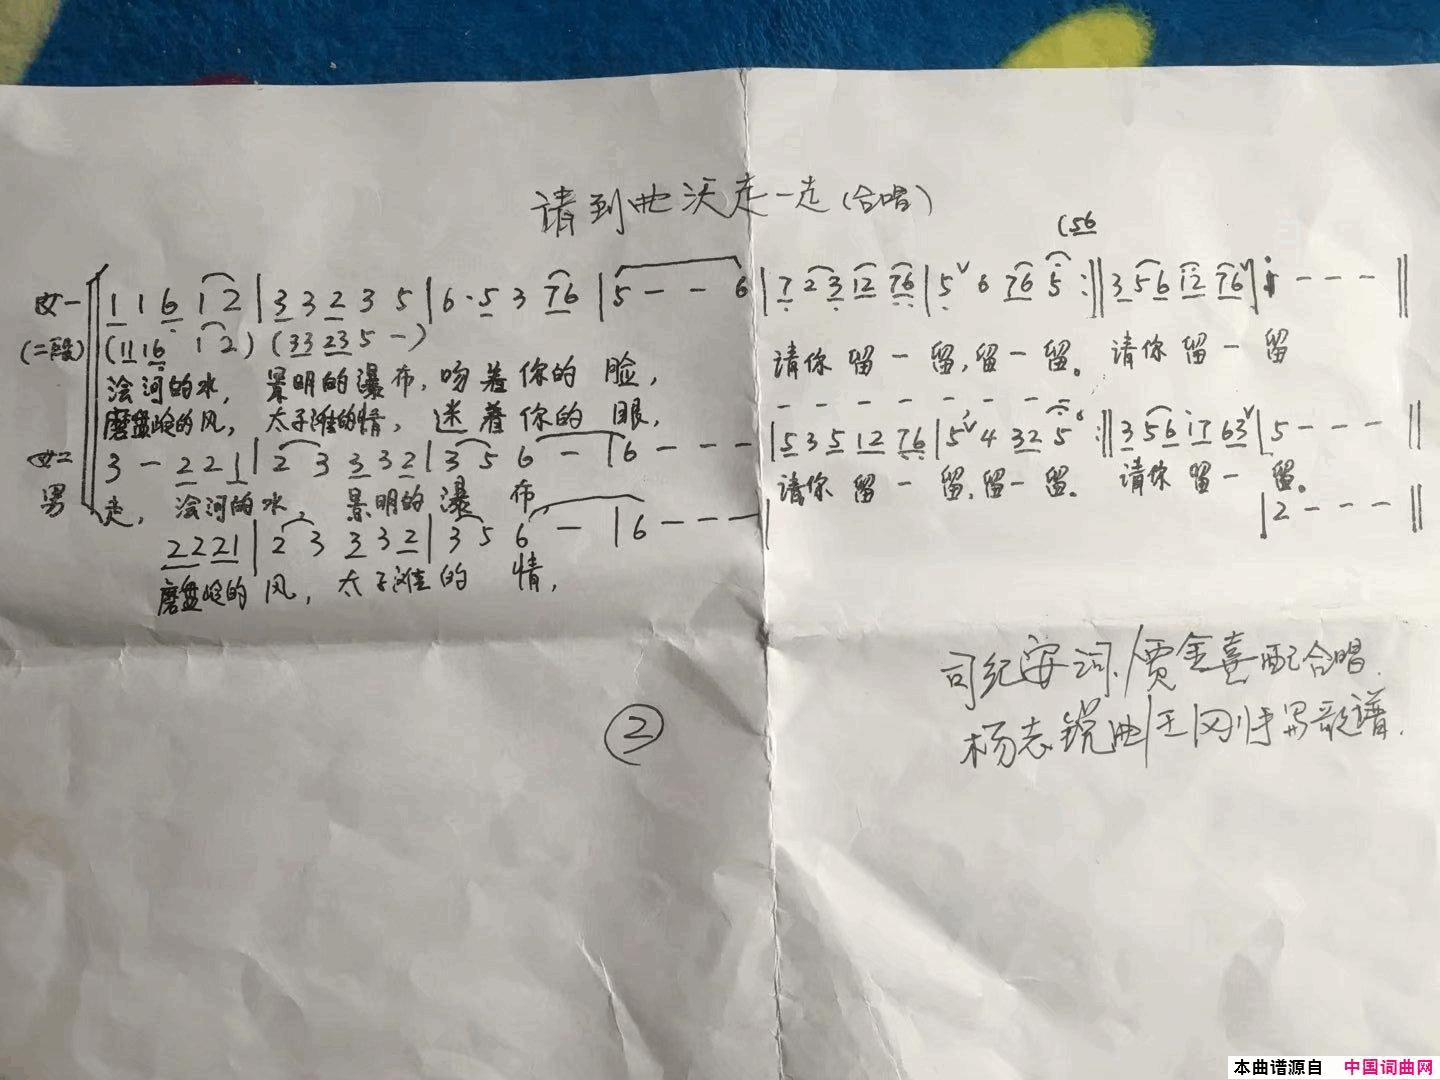 请到曲沃走一走(合唱)
(56
女一 1 1 6 1 2 | 3 3 2 3 5 | 6 · 5 3 76 | 5 - - 6 | 7 2 3 12 76 | 5 ∨ 6 76 5 :‖ 3 56 12 76 ∨ | i - - - ‖
(二段) (11 16 1 2) (33 23 5 -)
请你留一留,留一留。 请你留一留
浍河的水, 景明的瀑布,吻着你的脸,
磨盘岭的风, 太子滩的情, 迷着你的眼,
女二 3 - 2 2 1 | 2 3 3 3 2 | 3 5 6 - | 6 - - - | 5 3 5 12 76 | 5 ∨ 4 32 5 :‖ 3 56 17 63 ∨ | 5 - - - ‖
男 走, 浍河的水, 景明的瀑布, 请你留一留,留一留。 请你留一留。
2 2 2 1 | 2 3 3 3 2 | 3 5 6 - | 6 - - - | | 2 - - - ‖
磨盘岭的风, 太子滩的情,
司纪安词/贾金喜配合唱.
杨志锐曲/王
②
本曲谱源自 中国词曲网